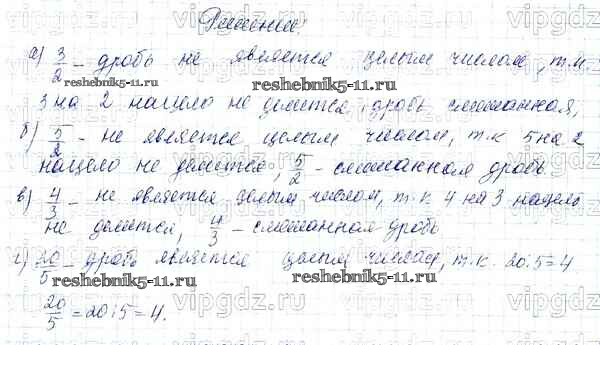 Решение:
а) 3/2 – дробь не является целым числом, т.к.
3 на 2 нацело не делится, дробь смешанная,
б) 5/2 – не является целым числом, т.к. 5 на 2
нацело не делится, 5/2 – смешанная дробь
в) 4/3 – не является целым числом, т.к. 4 на 3 нацело
не делится, 4/3 – смешанная дробь
г) 20/5 – дробь является целым числом, т.к. 20:5=4
20/5 = 20:5 = 4.
vipgdz.ru
reshebnik5-11.ru
reshebnik5-11.ru
reshebnik5-11.ru
reshebnik5-11.ru